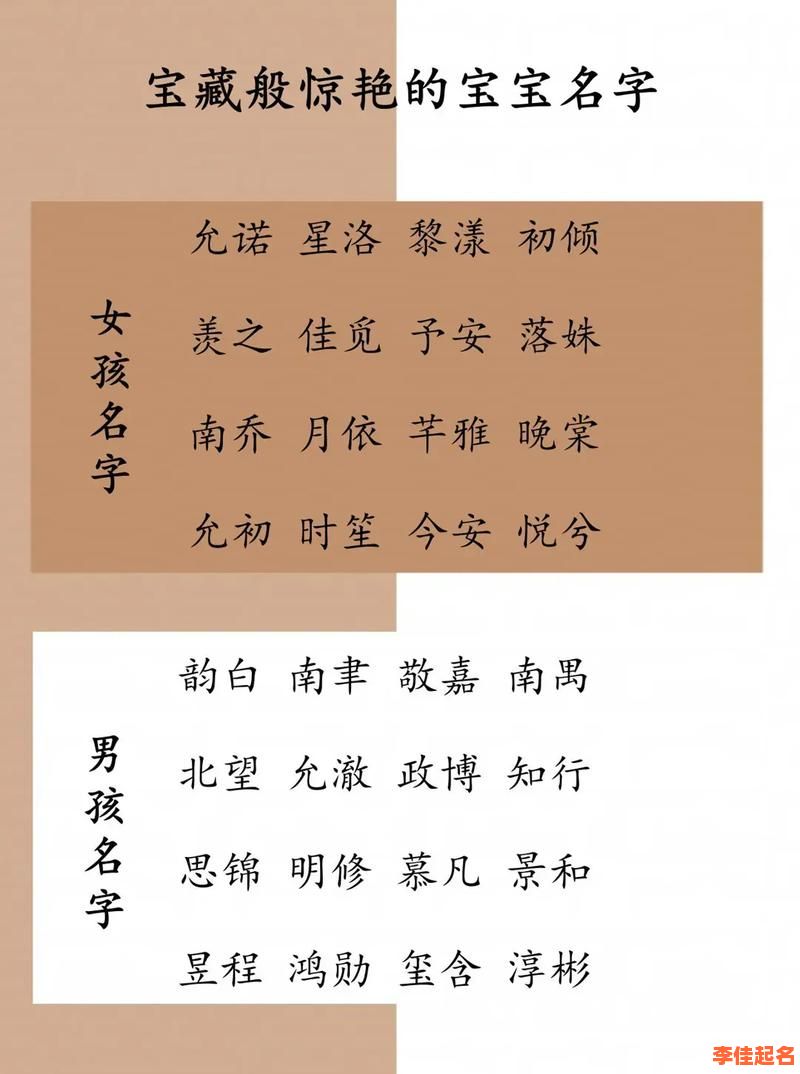 宝藏般惊艳的宝宝名字
女孩名字
允诺 星洛 黎漾 初倾
羡之 佳觅 予安 落姝
南乔 月依 芊雅 晚棠
允初 时笙 今安 悦兮
男孩名字
韵白 南聿 敬嘉 南禺
北望 允澈 政博 知行
思锦 明修 慕凡 景和
昱程 鸿勋 玺含 淳彬
李佳起名